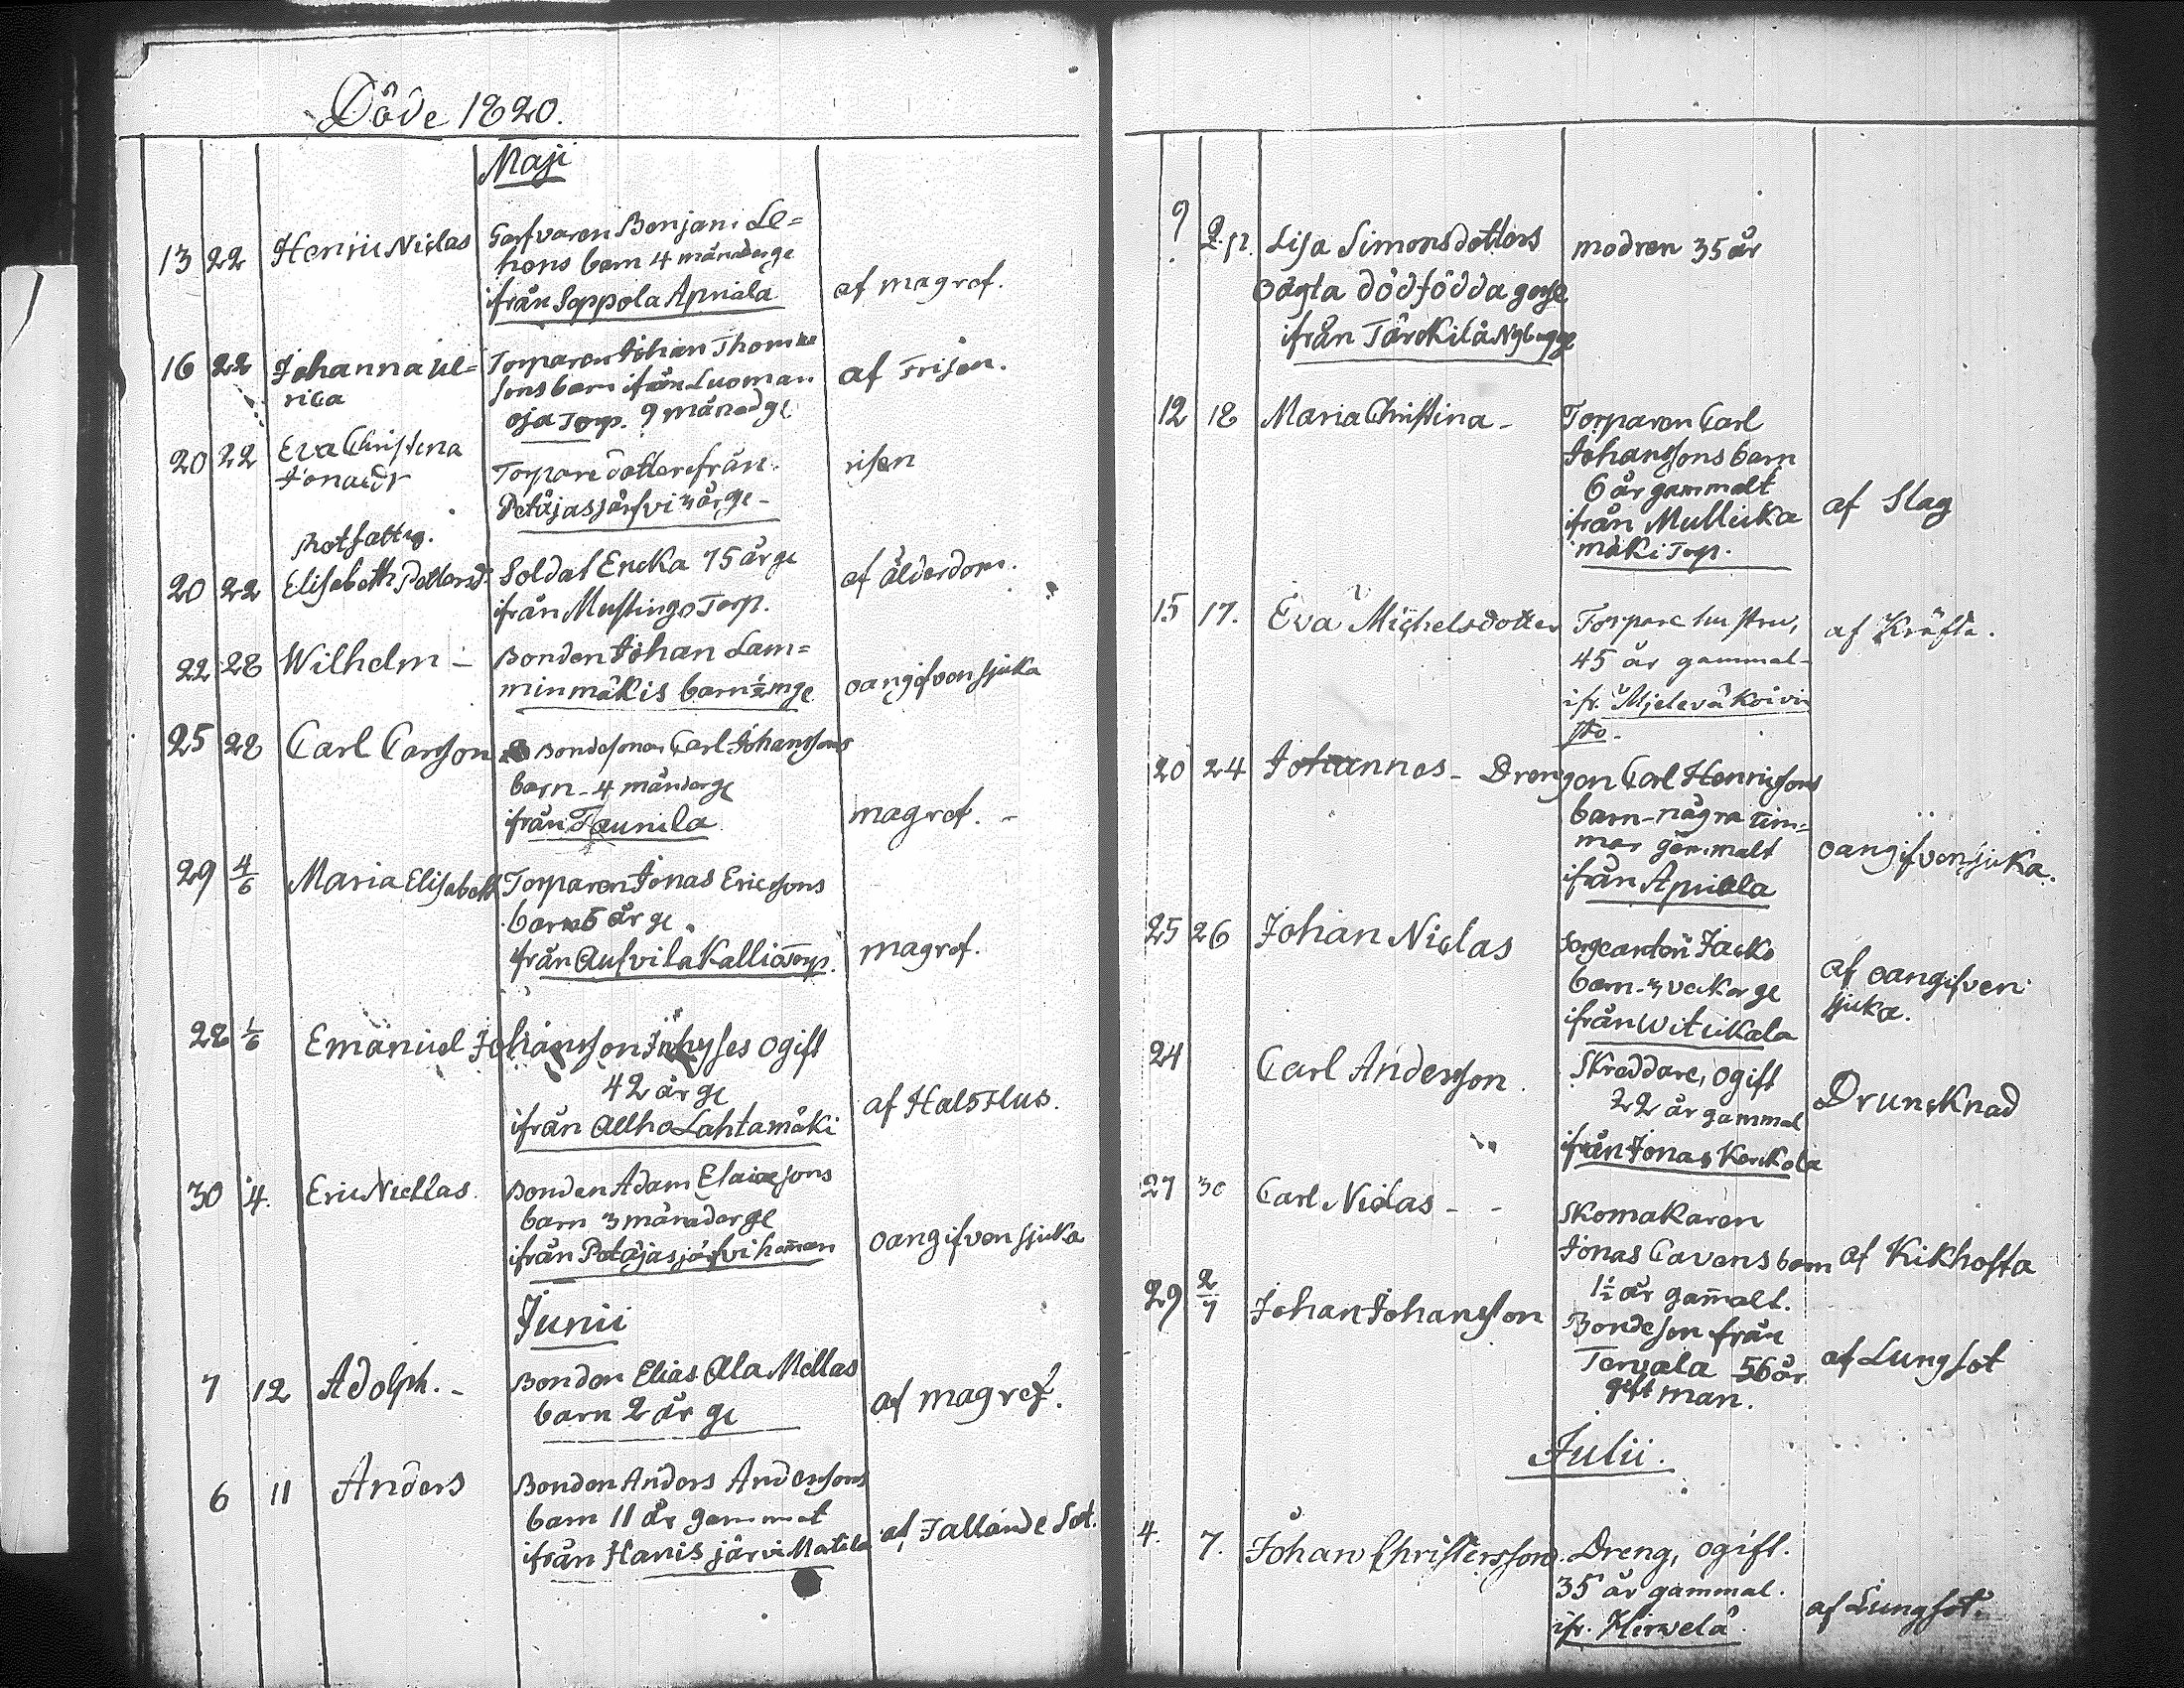 Döde 1820.
Maji
13 22 Henric Niclas Garfvaren Benjam: Le=
hons barn 4 månader ge
ifrån Soppola Apuala af magref.
16 22 Johanna Ul= Torparen Johan Thom
rica sons barn ifrån Luoman af Frisen.
oja Torp. 9 månad ge
20 22 Eva Christina
Jonaedr Torpare dotter från risen
Petäjasjärfvi 3 år ge
Rotfattig.
20 22 Elisabeth Pettersd. Soldat Encka 75 år ge af ålderdom.
ifrån Mustingo Torp.
22 28 Wilhelm - Bonden Johan Lam=
minmäkis barn ½ m ge oangifven sjuka
25 28 Carl Carlsson Bondesonen Carl Johanssons
barn - 4 månader ge
ifrån Taunila magref. -
29 4/6 Maria Elisabeth Torparen Jonas Ericssons
barn 5 år ge.
ifrån Aufvila Kallio Torp. magref.
28 1/6 Emanuel Johansson Juhyses ogift
42 år ge
ifrån Allho Lahtamäki af Halsflus.
30 4. Eric Nicklas. Bonden Adam Elaiæsons
barn 3 månader ge
ifrån Petäjasjärfvi heman oangifven sjuka
Junii
7 12 Adolph. - Bonden Elias Ala Mellas
barn 2 år ge af magref.
6 11 Anders Bonden Anders Anderssons
barn 11 år gammat
ifrån Hanisjärvi Matela af Fallande Sot.
9 Lisa Simonsdotters modren 35 år
oägta dödfödda gosse
ifrån Tärckilä Nybygge
12 18 Maria Christina - Torparen Carl
Johanssons barn
6 år gammalt
ifrån Mullicka af Slag
mäki Torp.
15 17. Eva Michelsdotter Torpare hustru, af Kräfta.
45 år gammal -
ifr. Mjelevä Koivi
sto.
20 24 Johannes - Drengen Carl Henricssons
barn - några tim=
mar gammalt oangifven sjuka.
ifrån Apuala
25 26 Johan Niclas Sergeanten Jacks
barn - 3 veckor ge af oangifven
ifrån Witickala sjuka.
24 Carl Andersson. Skreddare, ogift
22 år gammal Druncknad
ifrån Jonas Kerckola
27 30 Carl Niclas - - Skomakaren
Jonas Cavens barn af Kikhosta
1½ år gamalt.
29 2/7 Johan Johansson Bondeson från
Tervala 56 år af Lungsot
gift man.
Julii.
4. 7. Johan Christersson. Dreng, ogift.
35 år gammal.
ifr. Hirvelä. af Lungsot.